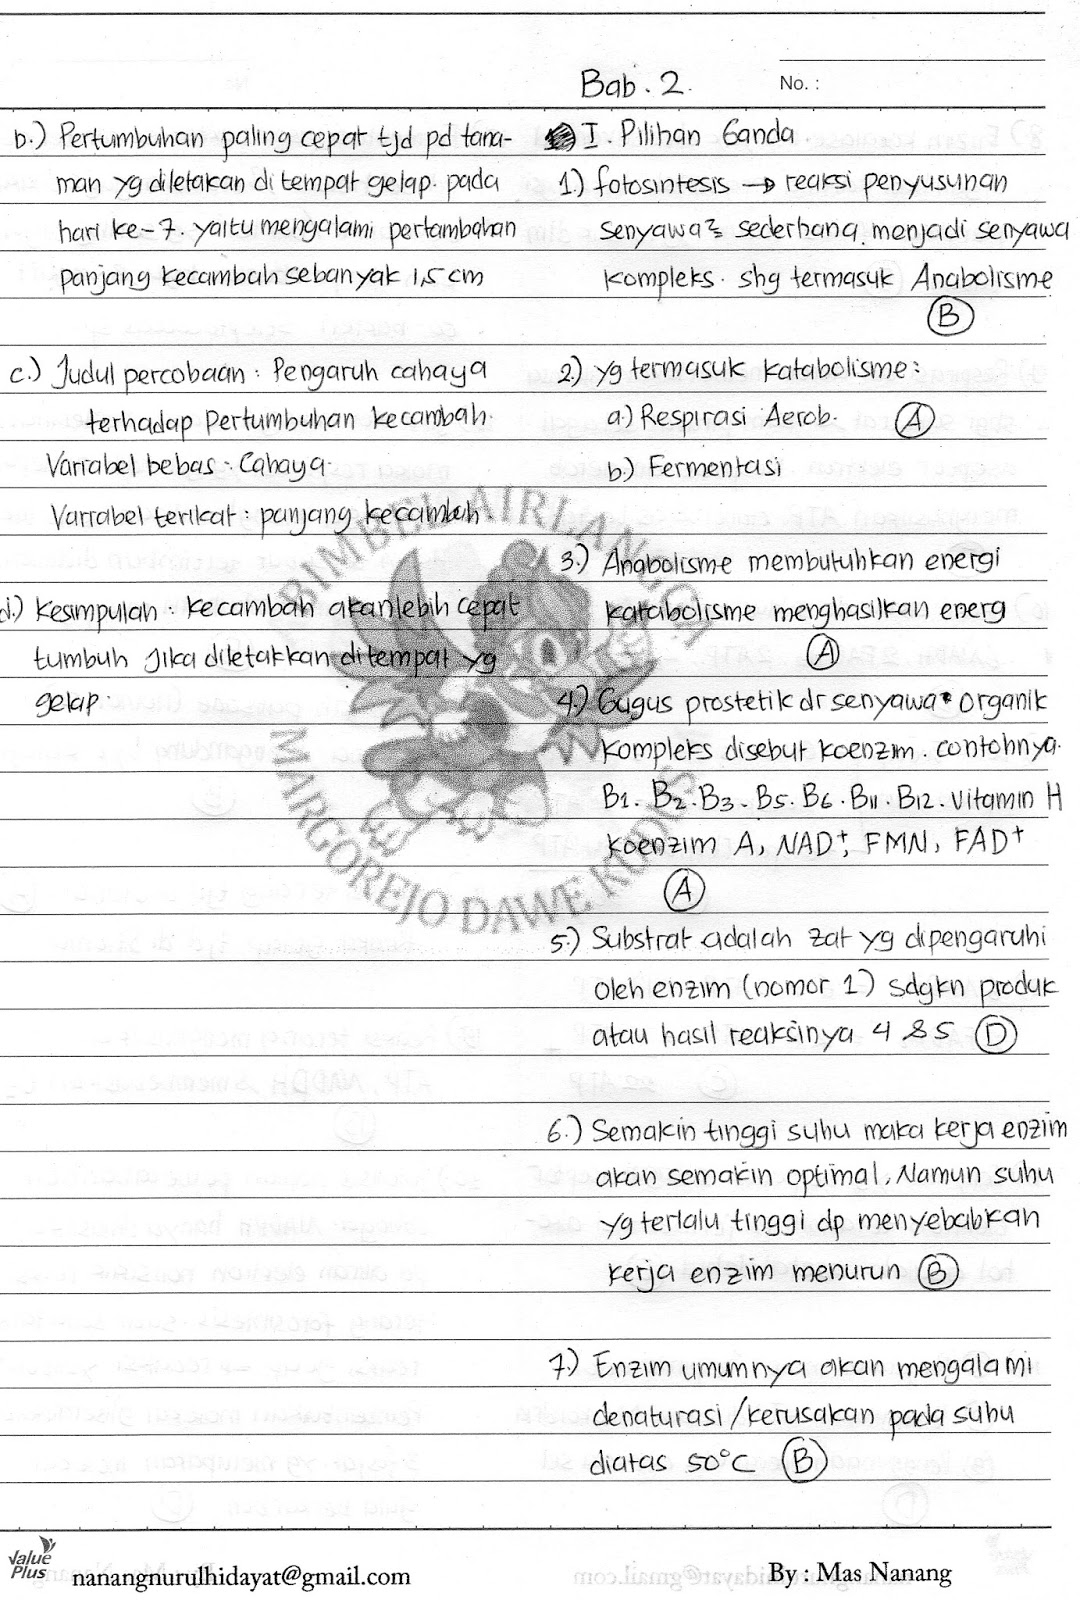 Bab. 2.
No. :
b.) Pertumbuhan paling cepat tjd pd tana-
man yg diletakan di tempat gelap. pada
hari ke-7. yaitu mengalami pertambahan
panjang kecambah sebanyak 1,5 cm
c.) Judul percobaan : Pengaruh cahaya
terhadap Pertumbuhan kecambah.
Variabel bebas : Cahaya.
Variabel terikat : panjang kecambah.
d.) Kesimpulan : Kecambah akan lebih cepat
tumbuh jika diletakkan ditempat yg
gelap.
I. Pilihan Ganda
1.) fotosintesis → reaksi penyusunan
senyawa² sederhana. menjadi senyawa
kompleks. shg termasuk Anabolisme
(B)
2.) yg termasuk katabolisme :
a.) Respirasi Aerob. (A)
b.) Fermentasi
3.) Anabolisme membutuhkan energi
katabolisme menghasilkan energ
(A)
4.) Gugus prostetik dr senyawa organik
kompleks disebut koenzim. contohnya.
B1. B2. B3. B5. B6. B11. B12. vitamin H
koenzim A, NAD+, FMN, FAD+
(A)
5.) Substrat adalah zat yg dipengaruhi
oleh enzim (nomor 1) sdgkn produk
atau hasil reaksinya 4 & 5 (D)
6.) Semakin tinggi suhu maka kerja enzim
akan semakin optimal, Namun suhu
yg terlalu tinggi dp menyebabkan
kerja enzim menurun (B)
7.) Enzim umumnya akan mengalami
denaturasi / kerusakan pada suhu
diatas 50°C (B)
BIMBEL AIRLANGGA
MARGOREJO DAWE KUDUS
Value
Plus
nanangnurulhidayat@gmail.com
By : Mas Nanang